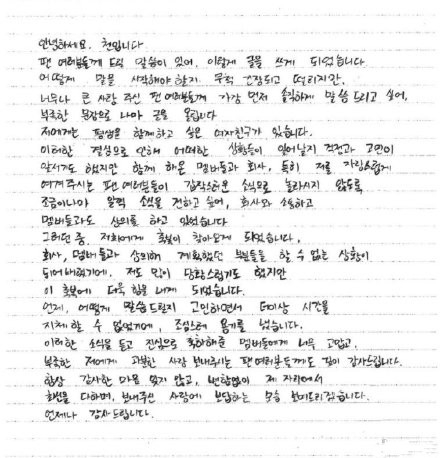 안녕하세요. 첸입니다
팬 여러분들께 드릴 말씀이 있어, 이렇게 글을 쓰게 되었습니다
어떻게 말을 시작해야할지 무척 긴장되고 떨리지만,
너무나 큰 사랑 주신 팬 여러분들께 가장 먼저 솔직하게 말씀드리고 싶어,
부족한 문장으로 나마 글을 올립니다
저에게는 평생을 함께하고 싶은 여자친구가 있습니다.
이러한 결심으로 인해 어떠한 상황들이 일어날지 걱정과 고민이
앞서기도 했지만 함께 해온 멤버들과 회사, 특히 저를 자랑스럽게
여겨주시는 팬 여러분들이 갑작스러운 소식으로 놀라시지 않도록
조금이나마 일찍 소식을 전하고 싶어, 회사와 소통하고
멤버들과도 상의를 하고 있었습니다
그러던 중, 저희에게 축복이 찾아오게 되었습니다.
회사, 멤버들과 상의해 계획했던 부분들을 할 수 없는 상황이
되어버렸기에, 저도 많이 당황스럽기도 했지만
이 축복에 더욱 힘을 내게 되었습니다.
언제, 어떻게 말씀드릴지 고민하면서 더이상 시간을
지체할 수 없었기에, 조심스레 용기를 냈습니다.
이러한 소식을 듣고 진심으로 축하해준 멤버들에게 너무 고맙고,
부족한 저에게 과분한 사랑 보내주시는 팬 여러분들께도 깊이 감사드립니다.
항상 감사한 마음 잊지 않고, 변함없이 제 자리에서
최선을 다하며, 보내주신 사랑에 보답하는 모습 보여드리겠습니다.
언제나 감사드립니다.